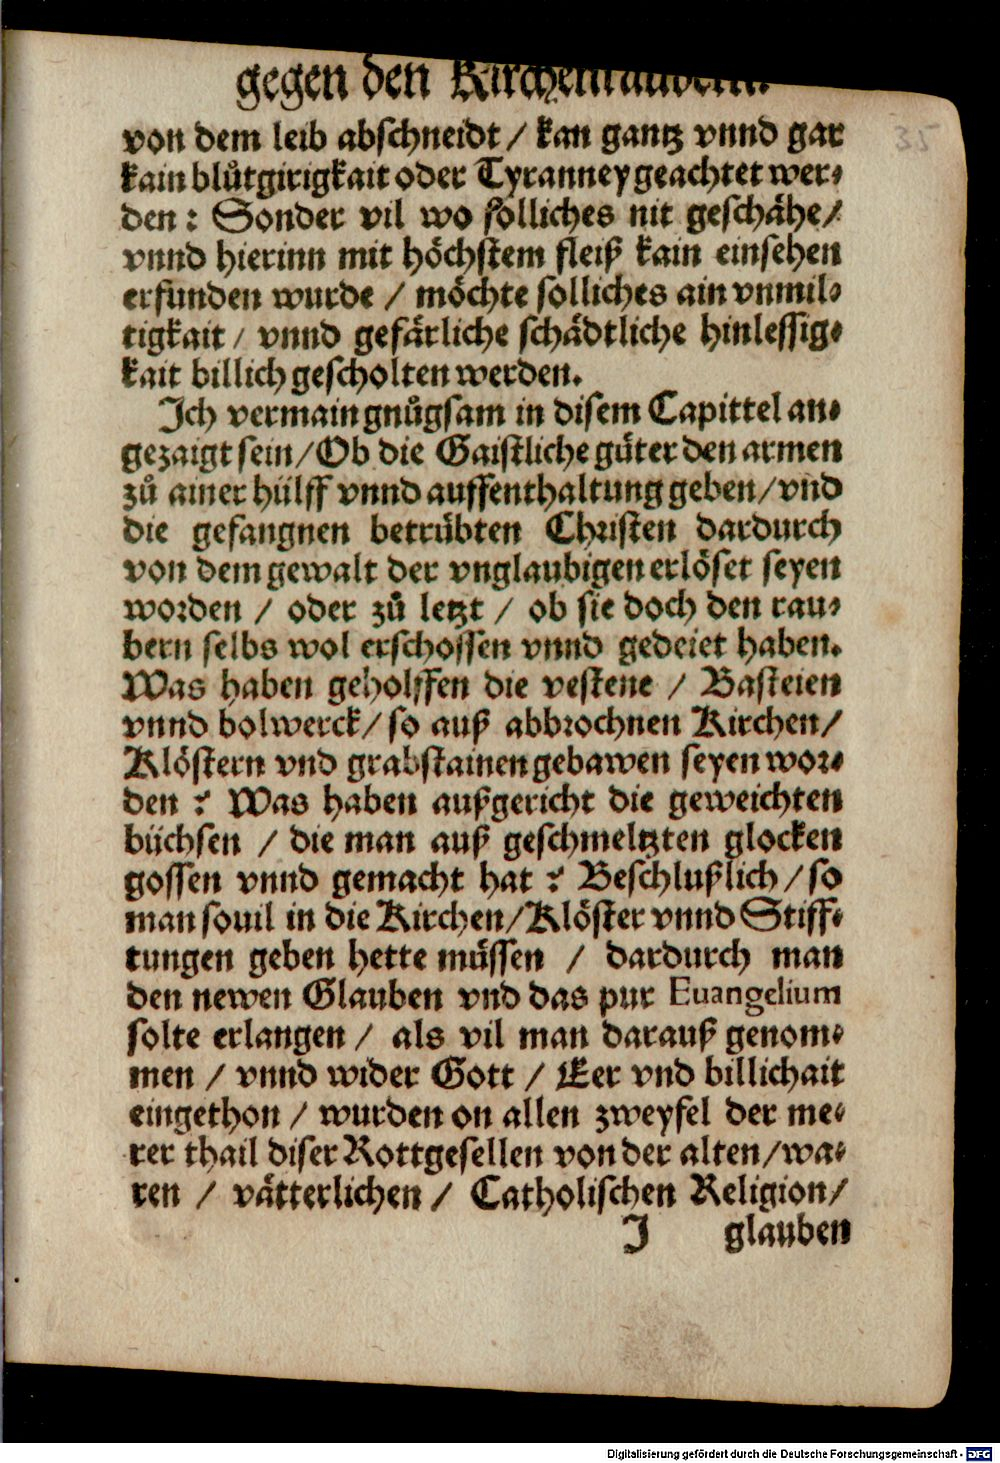 gegen den Kirchenraubern.
35
von dem leib abschneidt / kan gantz vnnd gar
kain blůtgirigkait oder Tyranney geachtet wer⸗
den : Sonder vil wo solliches nit geschähe /
vnnd hierinn mit höchstem fleiß kain einsehen
erfunden wurde / möchte solliches ain vnmil⸗
tigkait / vnnd gefärliche schädtliche hinlessig⸗
kait billich gescholten werden.
Ich vermain gnůgsam in disem Capittel an⸗
gezaigt sein / Ob die Gaistliche güter den armen
zů ainer hülff vnnd auffenthaltung geben / vnd
die gefangnen betrübten Christen dardurch
von dem gewalt der vnglaubigen erlöset seyen
worden / oder zů letzt / ob sie doch den rau⸗
bern selbs wol erschossen vnnd gedeiet haben.
Was haben geholffen die vestene / Basteien
vnnd bolwerck / so auß abbrochnen Kirchen /
Klöstern vnd grabstainen gebawen seyen wor⸗
den ? Was haben außgericht die geweichten
büchsen / die man auß geschmeltzten glocken
gossen vnnd gemacht hat ? Beschlußlich / so
man souil in die Kirchen / Klöster vnnd Stiff⸗
tungen geben hette müssen / dardurch man
den newen Glauben vnd das pur Euangelium
solte erlangen / als vil man darauß genom⸗
men / vnnd wider Gott / Eer vnd billichait
eingethon / wurden on allen zweyfel der me⸗
rer thail diser Rottgesellen von der alten / wa⸗
ren / vätterlichen / Catholischen Religion /
J glauben
Digitalisierung gefördert durch die Deutsche Forschungsgemeinschaft - DFG